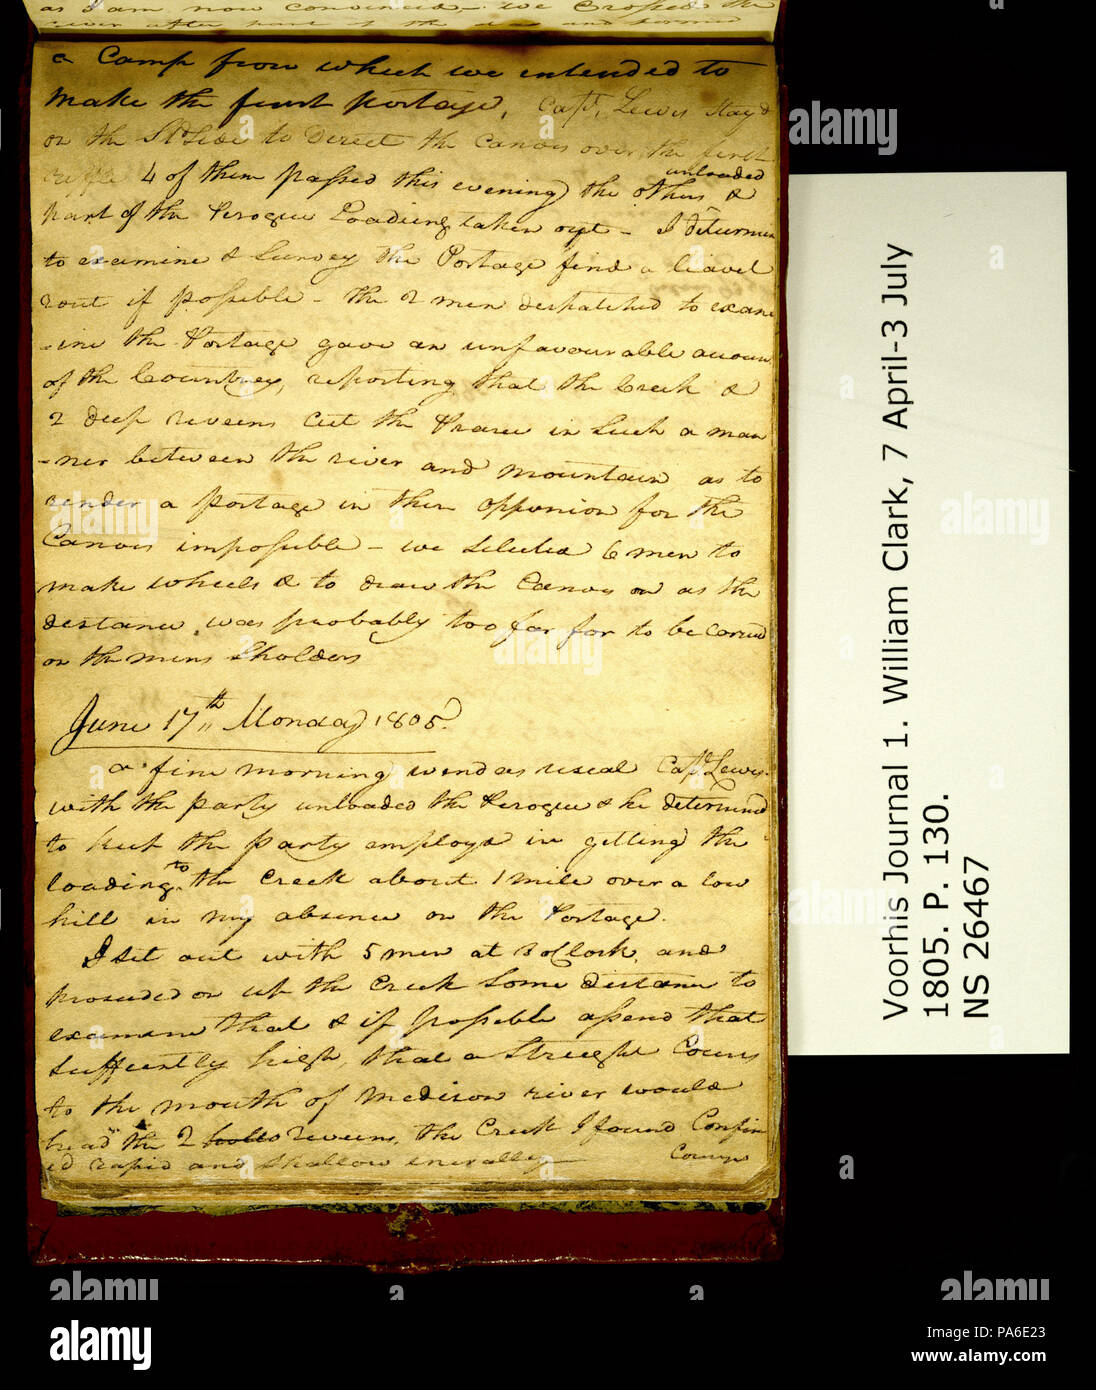 as I am now convinced – we Crossed the
river after part of the day and formed
a Camp from which we intended to
make the first portage, Capt. Lewis Stayd
on the Std Side to Derect the Canoes over the first
riffle 4 of them passed this evening the others unloaded &
part of the Perogue Loading taken out – I deturmine
to examine & Survey the Portage find a leavel
rout if possible – the 2 men despatched to exam
-ine the Portage gave an unfavourable accoun
of the Countrey, reporting that the Creek &
2 deep reveens cut the Prarie in Such a man
-ner between the river and mountain as to
render a portage in their oppinion for the
Canoes impossible – we Selected 6 men to
make wheels & to draw the Canoes on as the
distance was probably too far for to be caried
on the mens Sholders
June 17th Monday 1805.
a fine morning wind as usial Capt. Lewis
with the party unloaded the Perogue & he determined
to keep the party employd in getting the
loading to the Creek about 1 mile over a low
hill in my absence on the Portage.
I Set out with 5 men at 8 oClock, and
proseeded on up the Creek Some distance to
examine that & if possable assend that
Suffcently high, that a Streight Cours
to the mouth of Medison river would
head the 2 reveens, the Creek I found Confin
ed rapid and Shallow generalley
Voorhis Journal 1. William Clark, 7 April-3 July
1805. P. 130.
NS 26467
alamy
alamy
Image ID: PA6E23
www.alamy.com